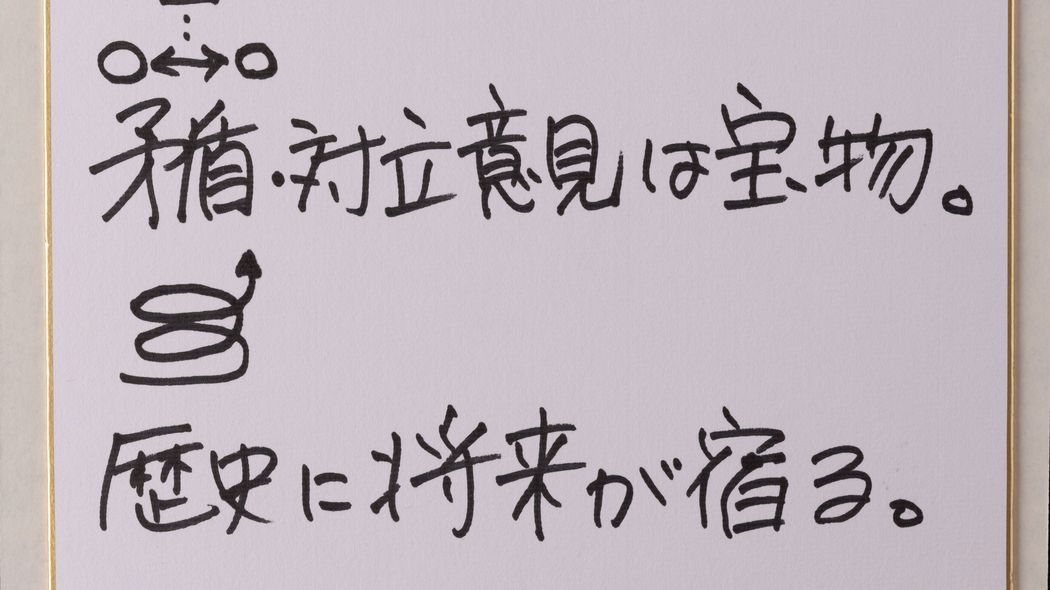 矛盾・対立意見は宝物。
歴史に将来が宿る。